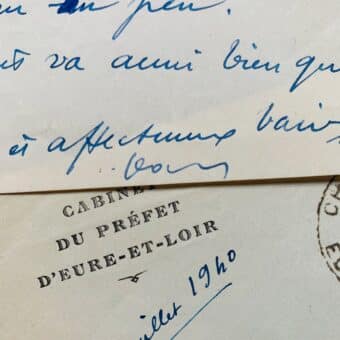 un peu.
va aussi bien qu
et affectueux baisers
CABINE
DU PRÉFET
D'EURE-ET-LOIR
juillet 1940